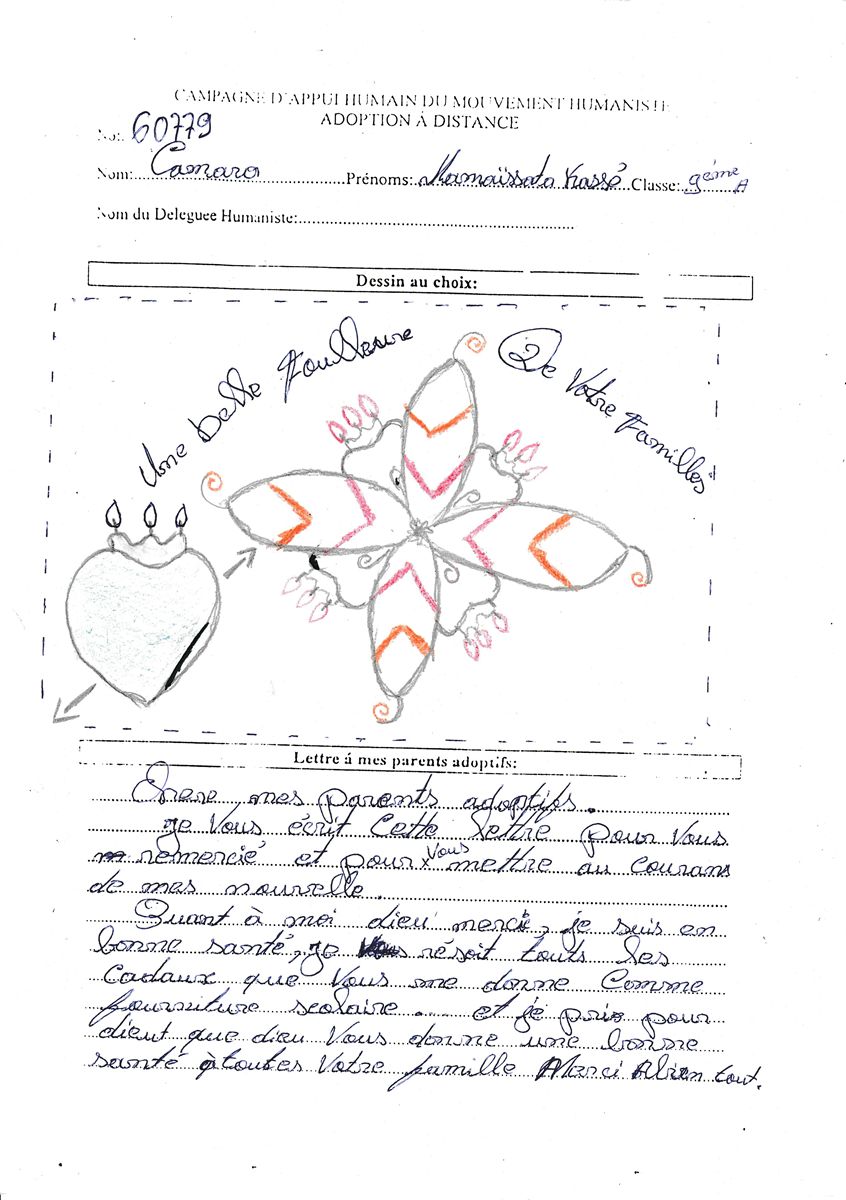 CAMPAGNE D'APPUI HUMAIN DU MOUVEMENT HUMANISTE
ADOPTION À DISTANCE
No: 60779
Nom: Camara Prénoms: Mamaïssata Kassé Classe: 9ème A
Nom du Deleguee Humaniste:
Dessin au choix:
Une belle Foulleure De Votre Familles
Lettre á mes parents adoptifs:
Chere mes parents adoptifs.
je Vous écrit Cette lettre pour Vous
remercié et pour Vous mettre au courans
de mes nourvelle.
Quant à moi dieu merci, je suis en
bonne santé, je résoit touts les
Cadaux que Vous me donne Comme
fourniture scolaire... et je prie pour
dieut que dieu Vous donne une bonne
santé à toutes Votre famille Merci tout.